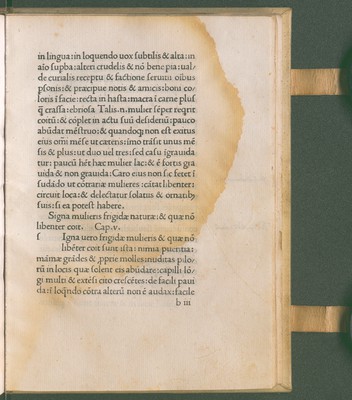 in lingua: in loquendo uox subtilis & alta: in
aīo supba: alteri crudelis & nō bene pia: ual-
de curialis receptu & factione seruitii oibus
psonis: & præcipue notis & amicis: boni co/
loris ī facie: recta in hasta: macra ī carne plusq̄
q̄ crassa: ebriosa. Talis .n. mulier sēper reqrit
coitū: & cōplet in actu suū desideriū: pauco
abūdat mēstruo: & quandoq; non est exitus
eius omī mēse ut cæteris: īmo trāsit unus mē
sis & plus: ut duo uel tres: sed casu īgrauida
tur: paucū hēt hæc mulier lac: & ē fortis gra
uida & non grauida: Caro eius non sic fetet ī
sudādo ut cōtrariæ mulieres: cātat libenter:
circuit loca: & delectatur solatus & ornatib9
suis: si ea potest habere.
Signa mulieris frigidæ naturæ: & quæ nō
libenter coit. Cap. v.
s Igna uero frigidæ mulieris & quæ nō
libēter coit sunt ista: nimia pinguītia:
māmæ grādes & pprie molles: nuditas pilo-
rū in locis quæ solent eis abūdare: capilli lō/
gi multi & extēsi cito crescētes: de facili paui
da: ī loqndo cōtra alterū non ē audax: facile
b iii